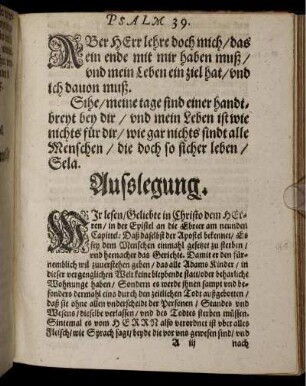 PSALM 39.
ABer HErr lehre doch mich / das
ein ende mit mir haben muß /
vnd mein Leben ein ziel hat / vnd
ich dauon muß.
Sihe / meine tage sind einer handt
breyt bey dir / vnd mein Leben ist wie
nichts für dir / wie gar nichts sindt alle
Menschen / die doch so sicher leben /
Sela.
Ausslegung.
WIr lesen / Geliebte in Christo dem HEr-
ren / in der Epistel an die Ebreer am neundten
Capittel: Daß daselbst der Apostel bekennet / Es
sey dem Menschen einmahl gesetzet zu sterben /
vnd hernacher das Gerichte. Damit er den für-
nemblich wil zuuerstehen geben / das alle Adams Kinder / in
dieser vergenglichen Welt keine bleybende stat / oder beharliche
Wohnunge haben / Sondern es werde ihnen sampt vnd be-
sonders dermahl eins durch den zeitlichen Todt außgebeten /
daß sie ohne allen vnderscheidt der Personen / Standes vnd
Wesens / dieselbe verlassen / vnd des Todtes sterben müssen.
Sintemal es vom HERRN also verordnet ist vber alles
Fleisch / wie Syrach sagt / beyde die vor vns gewesen sind / vnd
A iij nach